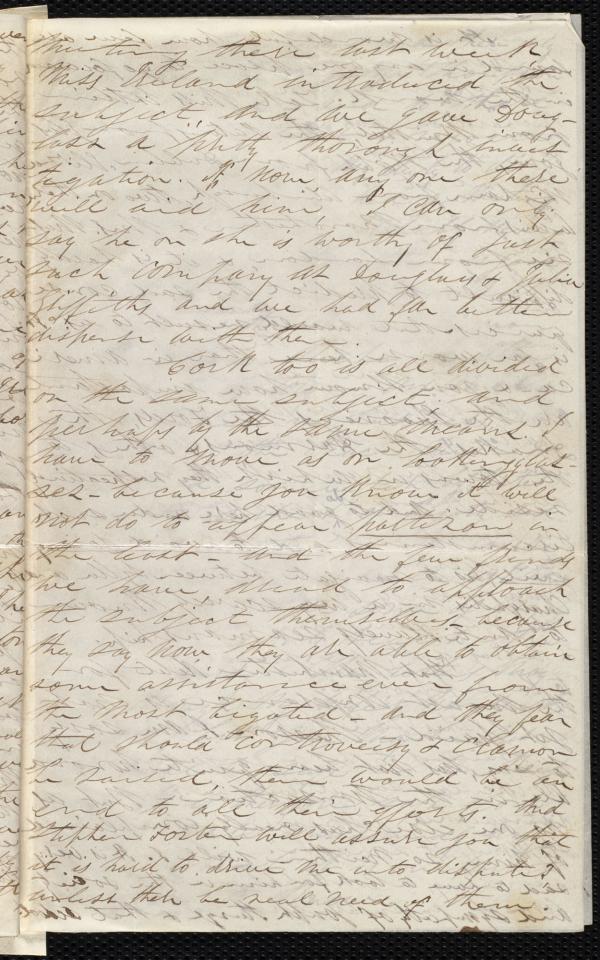 meeting there last week
Miss Ireland introduced the
subject, and we gave Doug-
lass a pretty thorough inves
tigation. If now, any one there
will aid him, I can only
say he or she is worthy of just
such company as Douglass & Julia
Griffiths and we had far better
dispense with them.
Cork too is all divided
on the same subject. and
perhaps by the same means. I
have to move as on looking glas-
ses - because you know it will
not do to appear partizan in
the least - and the few friends
we have, dread to approach
the subject themselves - because
they say now they are able to obtain
some assistance even from
the most bigoted - and they fear
that should controversy & clamor
be raised, there would be an
end to all their efforts. And
Stephen Foster will assure you that
it is hard to drive me into disputes
unless there be real need of them